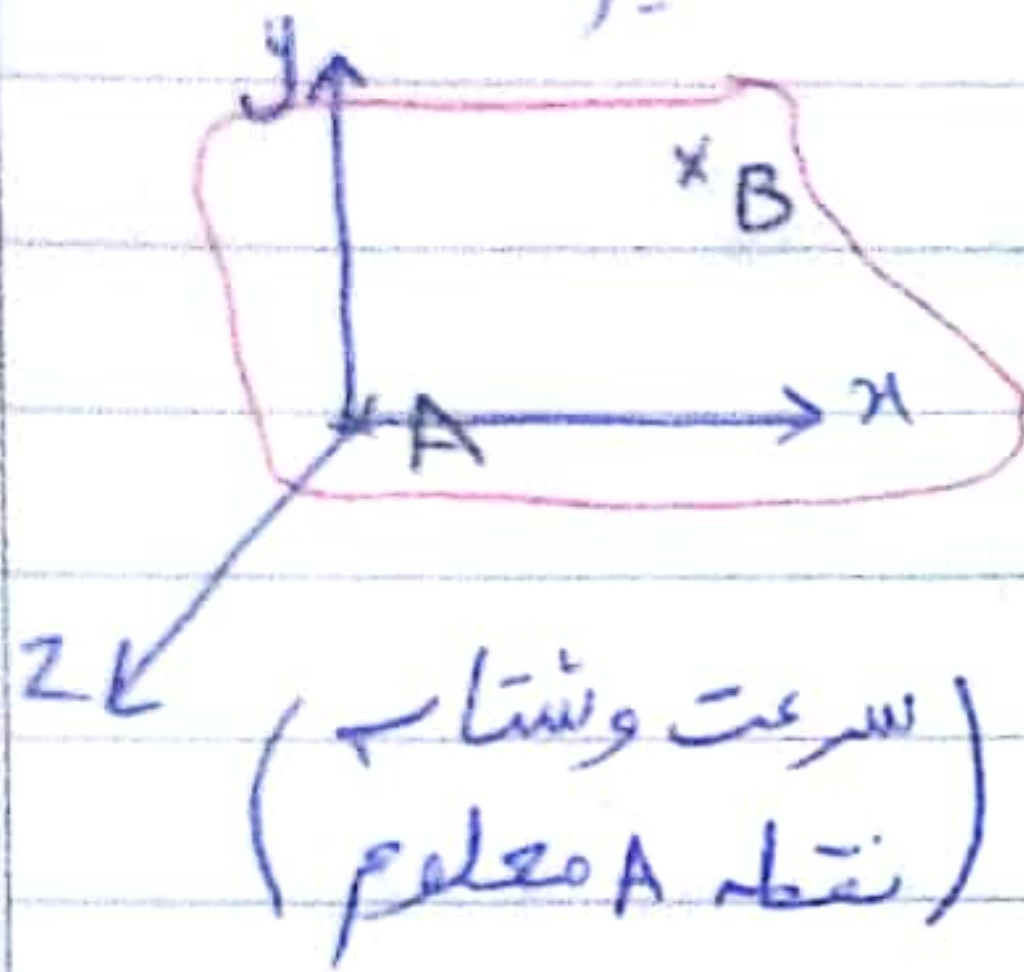 y
B
A
x
z
(سرعت وشتاب
نقطه A معلوم)